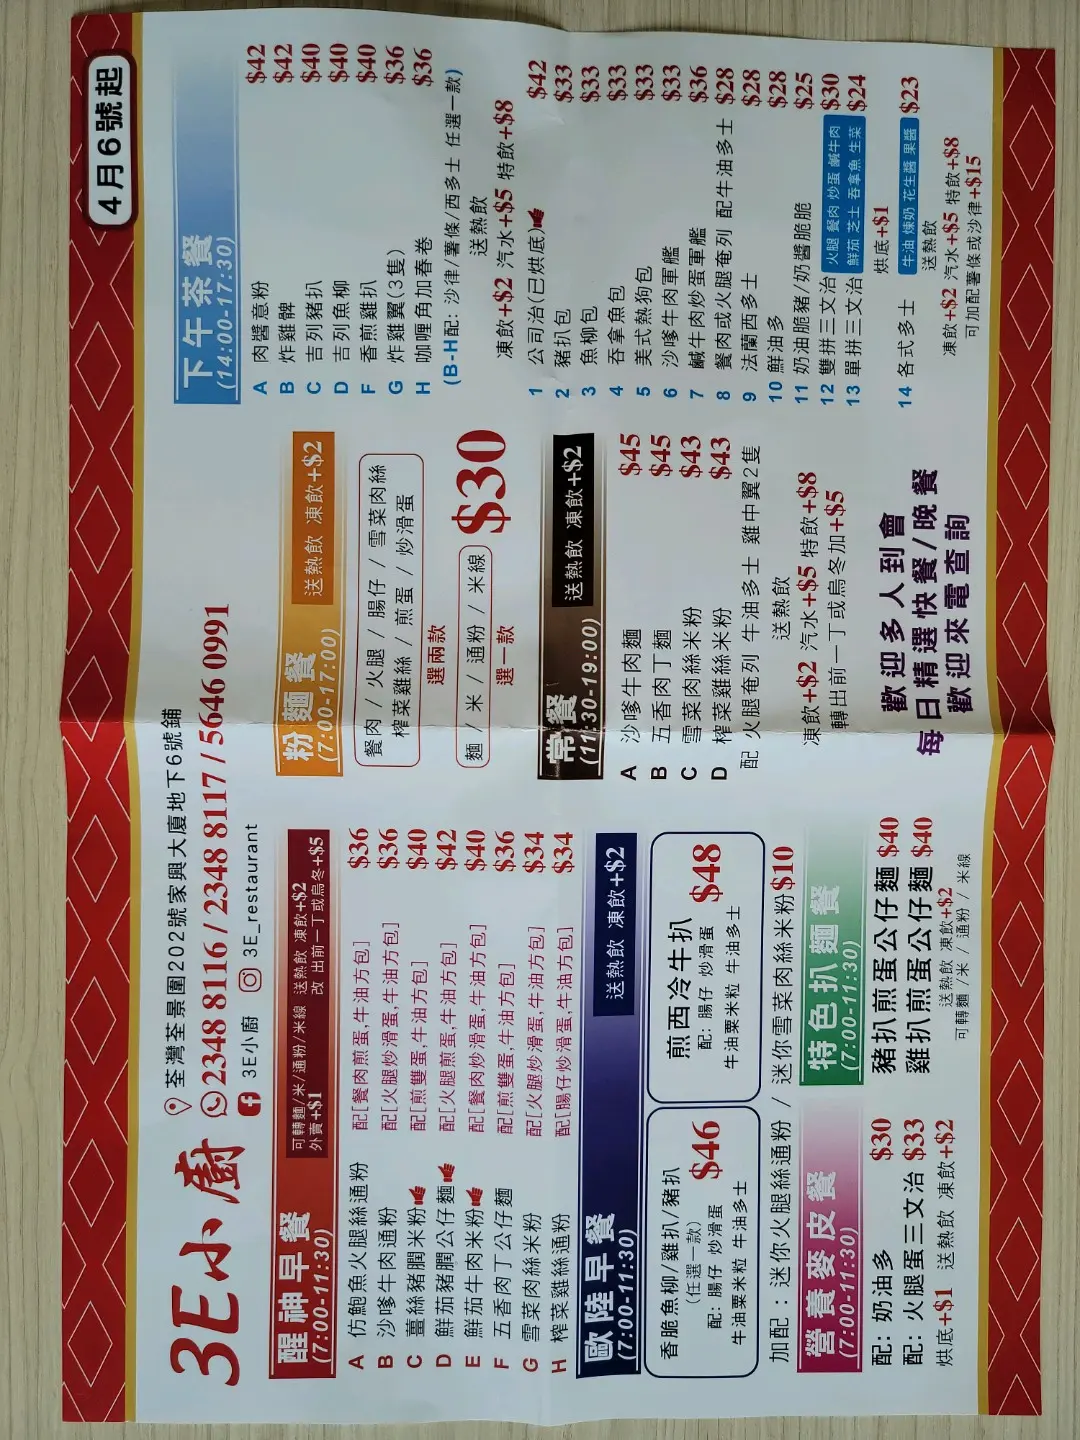 4月6號起
3E小廚
荃灣荃景圍202號家興大廈地下6號鋪
2348 8116 / 2348 8117 / 5646 0991
3E小廚 3E_restaurant
醒神早餐
(7:00-11:30)
可轉麵/米/通粉/米線 送熱飲 凍飲+$2
外賣+$1 改出前一丁或烏冬+$5
A 仿鮑魚火腿絲通粉 配[餐肉煎蛋,牛油方包] $36
B 沙嗲牛肉通粉 配[火腿炒滑蛋,牛油方包] $36
C 薑絲豬膶米粉 配[煎雙蛋,牛油方包] $40
D 鮮茄豬膶公仔麵 配[火腿煎蛋,牛油方包] $42
E 鮮茄牛肉米粉 配[餐肉炒滑蛋,牛油方包] $40
F 五香肉丁公仔麵 配[煎雙蛋,牛油方包] $36
G 雪菜肉絲米粉 配[火腿炒滑蛋,牛油方包] $34
H 榨菜雞絲通粉 配[腸仔炒滑蛋,牛油方包] $34
歐陸早餐
(7:00-11:30)
送熱飲 凍飲+$2
香脆魚柳/雞扒/豬扒
(任選一款)
配: 腸仔 炒滑蛋
牛油粟米粒 牛油多士
$46
煎西冷牛扒
配: 腸仔 炒滑蛋
牛油粟米粒 牛油多士
$48
加配 : 迷你火腿絲通粉 / 迷你雪菜肉絲米粉$10
營養麥皮餐
(7:00-11:30)
配: 奶油多 $30
配: 火腿蛋三文治 $33
烘底+$1 送熱飲 凍飲+$2
特色扒麵餐
(7:00-11:30)
豬扒煎蛋公仔麵 $40
雞扒煎蛋公仔麵 $40
送熱飲 凍飲+$2
可轉麵 / 米 / 通粉 / 米線
粉麵餐
(7:00-17:00)
送熱飲 凍飲+$2
餐肉 / 火腿 / 腸仔 / 雪菜肉絲
榨菜雞絲 / 煎蛋 / 炒滑蛋
選兩款
麵 / 米 / 通粉 / 米線
選一款
$30
常餐
(11:30-19:00)
送熱飲 凍飲+$2
A 沙嗲牛肉麵 $45
B 五香肉丁麵 $45
C 雪菜肉絲米粉 $43
D 榨菜雞絲米粉 $43
配 火腿奄列 牛油多士 雞中翼2隻
送熱飲
凍飲+$2 汽水+$5 特飲+$8
轉出前一丁或烏冬加+$5
歡迎多人到會
每日精選快餐/晚餐
歡迎來電查詢
下午茶餐
(14:00-17:30)
A 肉醬意粉 $42
B 炸雞髀 $42
C 吉列豬扒 $40
D 吉列魚柳 $40
F 香煎雞扒 $40
G 炸雞翼(3隻) $36
H 咖喱角加春卷 $36
(B-H配: 沙律/薯條/西多士 任選一款)
送熱飲
凍飲+$2 汽水+$5 特飲+$8
1 公司治(已烘底) $42
2 豬扒包 $33
3 魚柳包 $33
4 吞拿魚包 $33
5 美式熱狗包 $33
6 沙嗲牛肉軍艦 $33
7 鹹牛肉炒蛋軍艦 $36
8 餐肉或火腿奄列 配牛油多士 $28
9 法蘭西多士 $28
10 鮮油多 $28
11 奶油脆豬/奶醬脆脆 $25
12 雙拼三文治 火腿 餐肉 炒蛋 鹹牛肉 $30
13 單拼三文治 鮮茄 芝士 吞拿魚 生菜 $24
烘底+$1
14 各式多士 牛油 煉奶 花生醬 果醬 $23
送熱飲
凍飲+$2 汽水+$5 特飲+$8
可加配薯條或沙律+$15